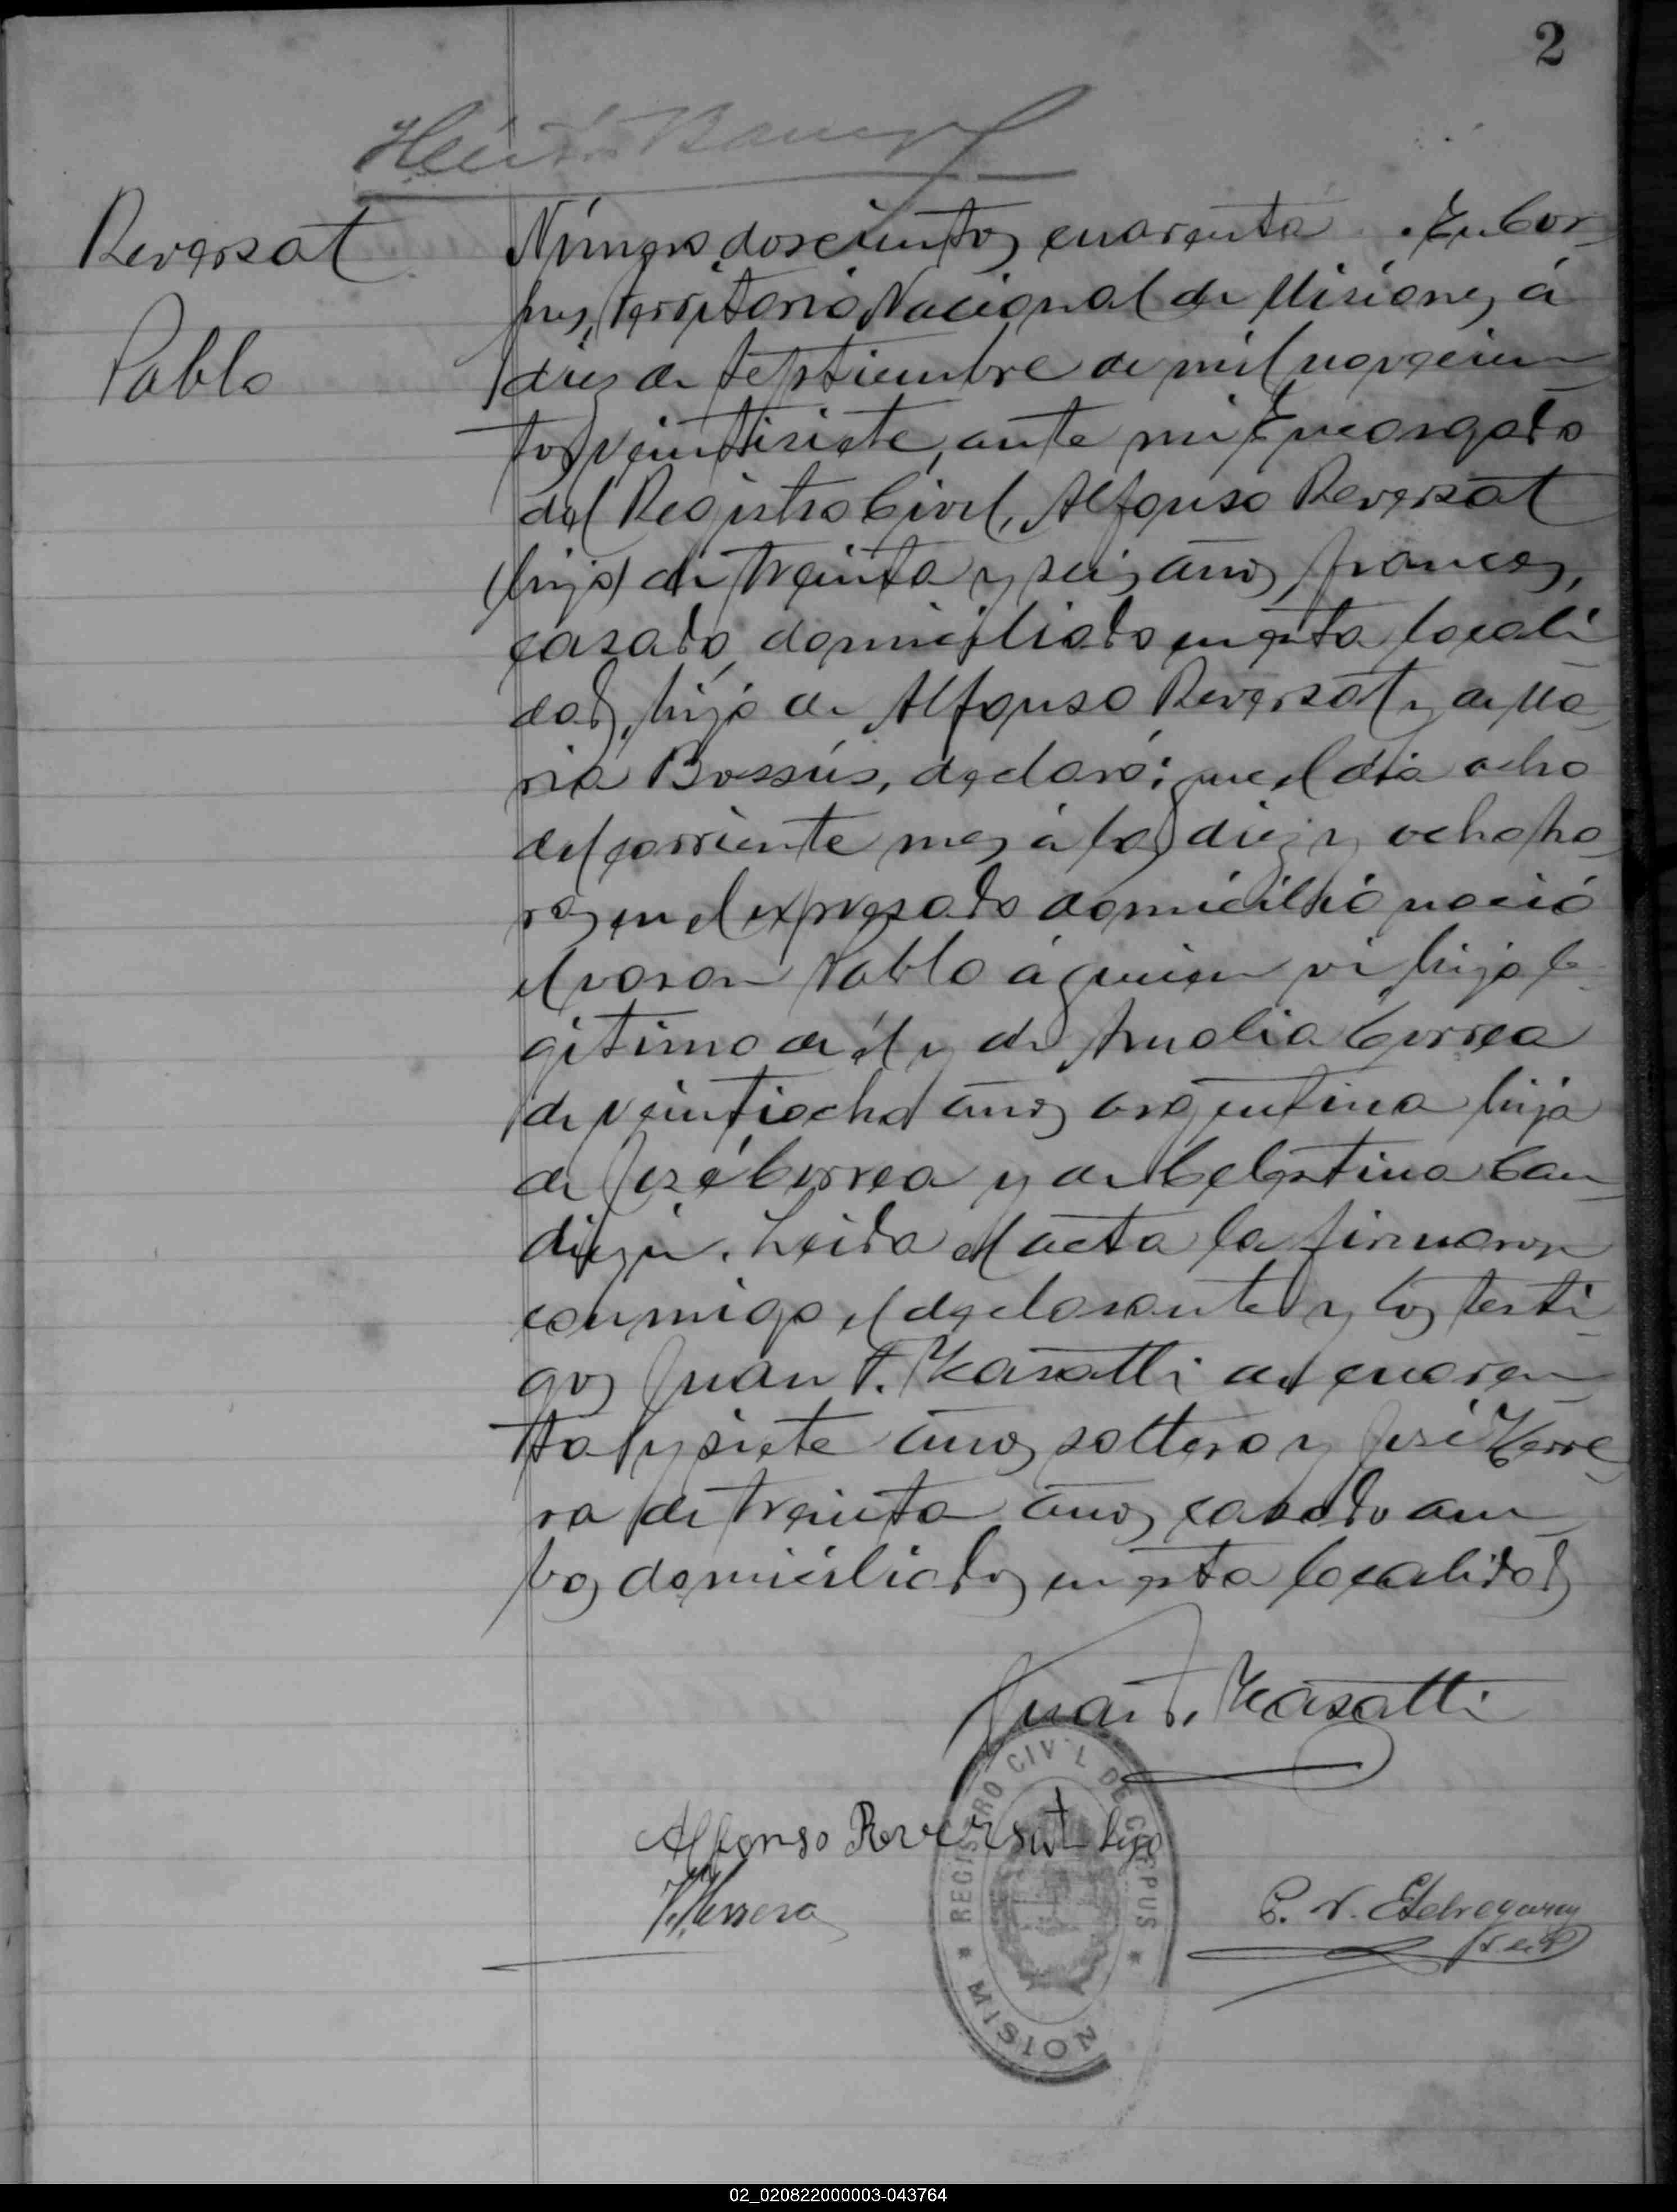 2
Reversat
Pablo
Número doscientos cuarenta. En Cor
pus, Territorio Nacional de Misiones, á
diez de Septiembre de mil novecien
tos veintisiete, ante mi Encargado
del Registro Civil, Alfonso Reversat
(hijo) de treinta y seis años, frances,
casado, domiciliado en esta locali
dad, hijo de Alfonso Reversat y de Ma
ria Bossús, declaró: que el dia ocho
del corriente mes á las diez y ocho ho
ras en el expresado domicilio nació
el varon Pablo á quien vi hijo le
gitimo de él y de Amalia Correa
de veintiocho años argentina hija
de José Correa y de Celestina
Leida el acta la firmaron
conmigo el declarante y los testi
gos Juan F. Kasatti de cuaren
ta y siete años soltero y José Herre
ra de treinta años casado am
bos domiciliados en esta localidad
Juan F. Kasatti
Alfonso Reversat hijo
J. Herrera
C. N. Etchegaray
REGISTRO CIVIL DE CORPUS
MISION
02_020822000003-043764